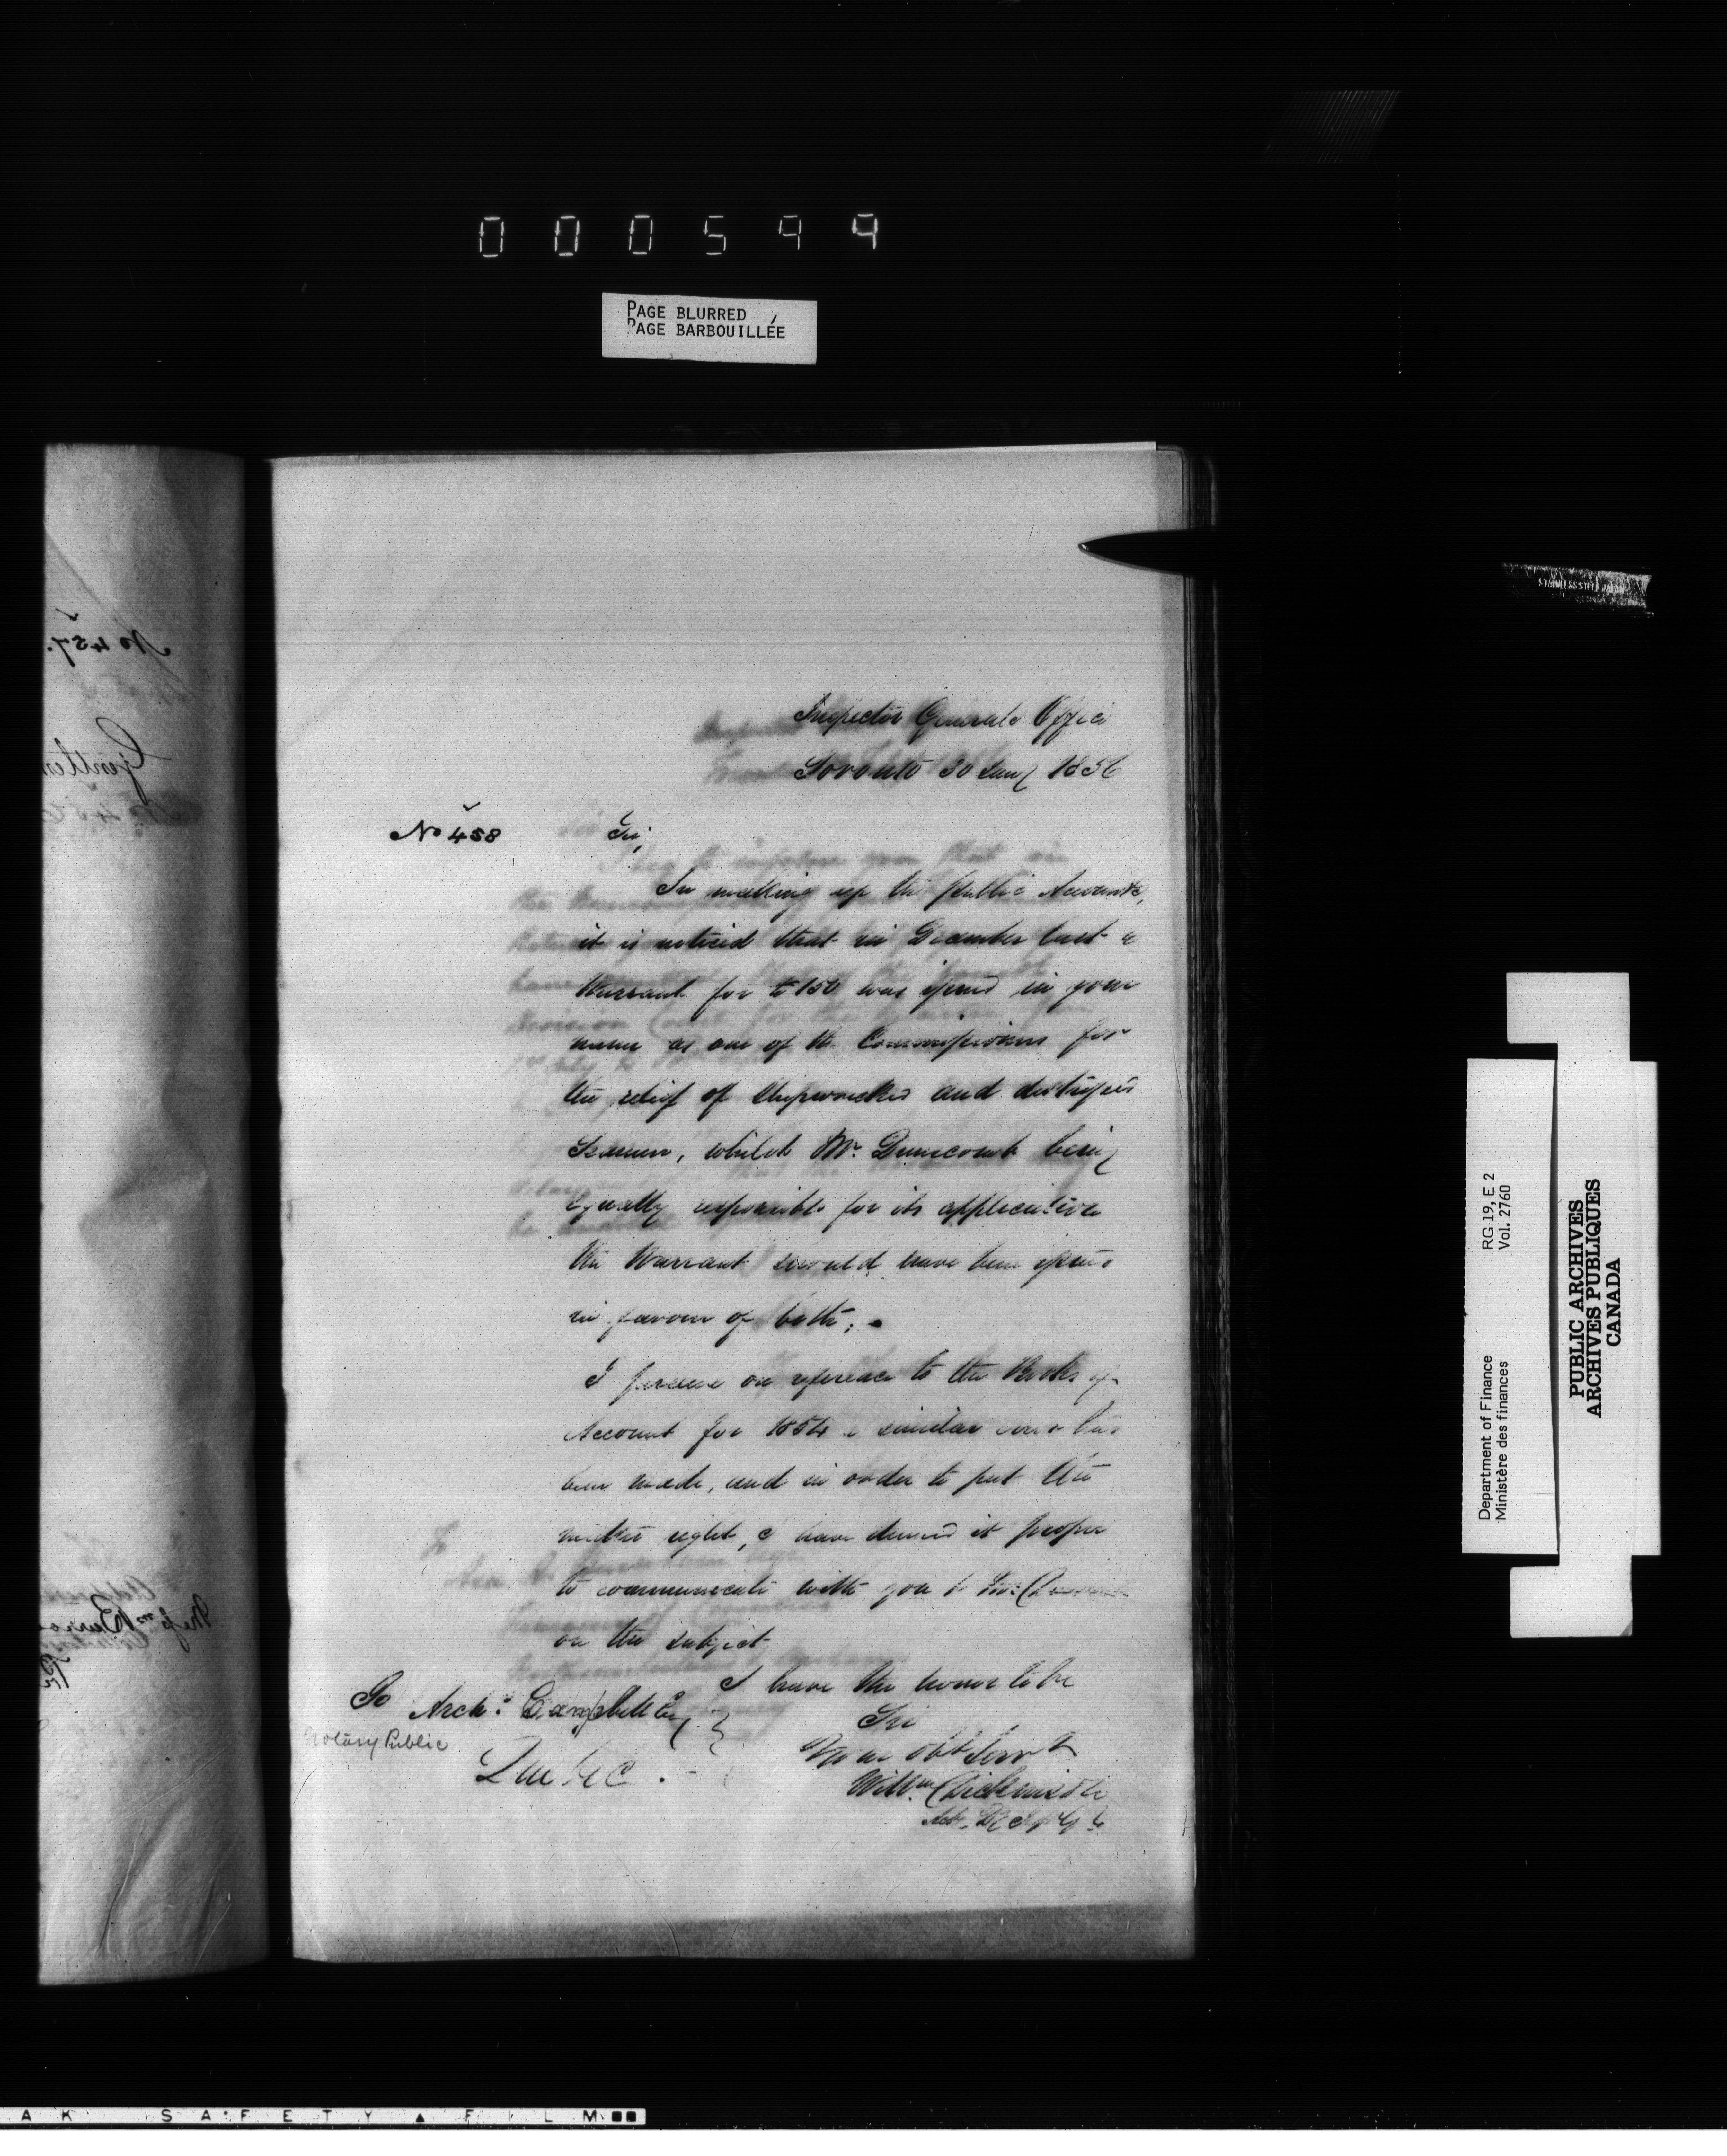 000599
PAGE BLURRED
PAGE BARBOUILLÉE
Inspector Generals Office
Toronto 30 Jany 1856
No 458
Sir,
In making up the public Accounts,
it is noticed that in December last a
Warrant for £150 was issued in your
name as one of the Commissioners for
the relief of Shipwrecked and distressed
Seamen, whilst Mr. Dunscomb being
equally responsible for its application
the Warrant should have been issued
in favour of both; -
I perceive on reference to the Books of
Account for 1854 a similar error has
been made, and in order to put the
matter right, I have deemed it proper
to communicate with you
on the subject
I have the honor to be
Sir
Your obt Servt
Willm Dickinson
To Archd Campbell Esq
Notary Public
Quebec. -
No 457.
Gentlem
Messrs Burro
Department of Finance
Ministère des finances
RG 19, E 2
Vol. 2760
PUBLIC ARCHIVES
ARCHIVES PUBLIQUES
CANADA
AK SAFETY FILM